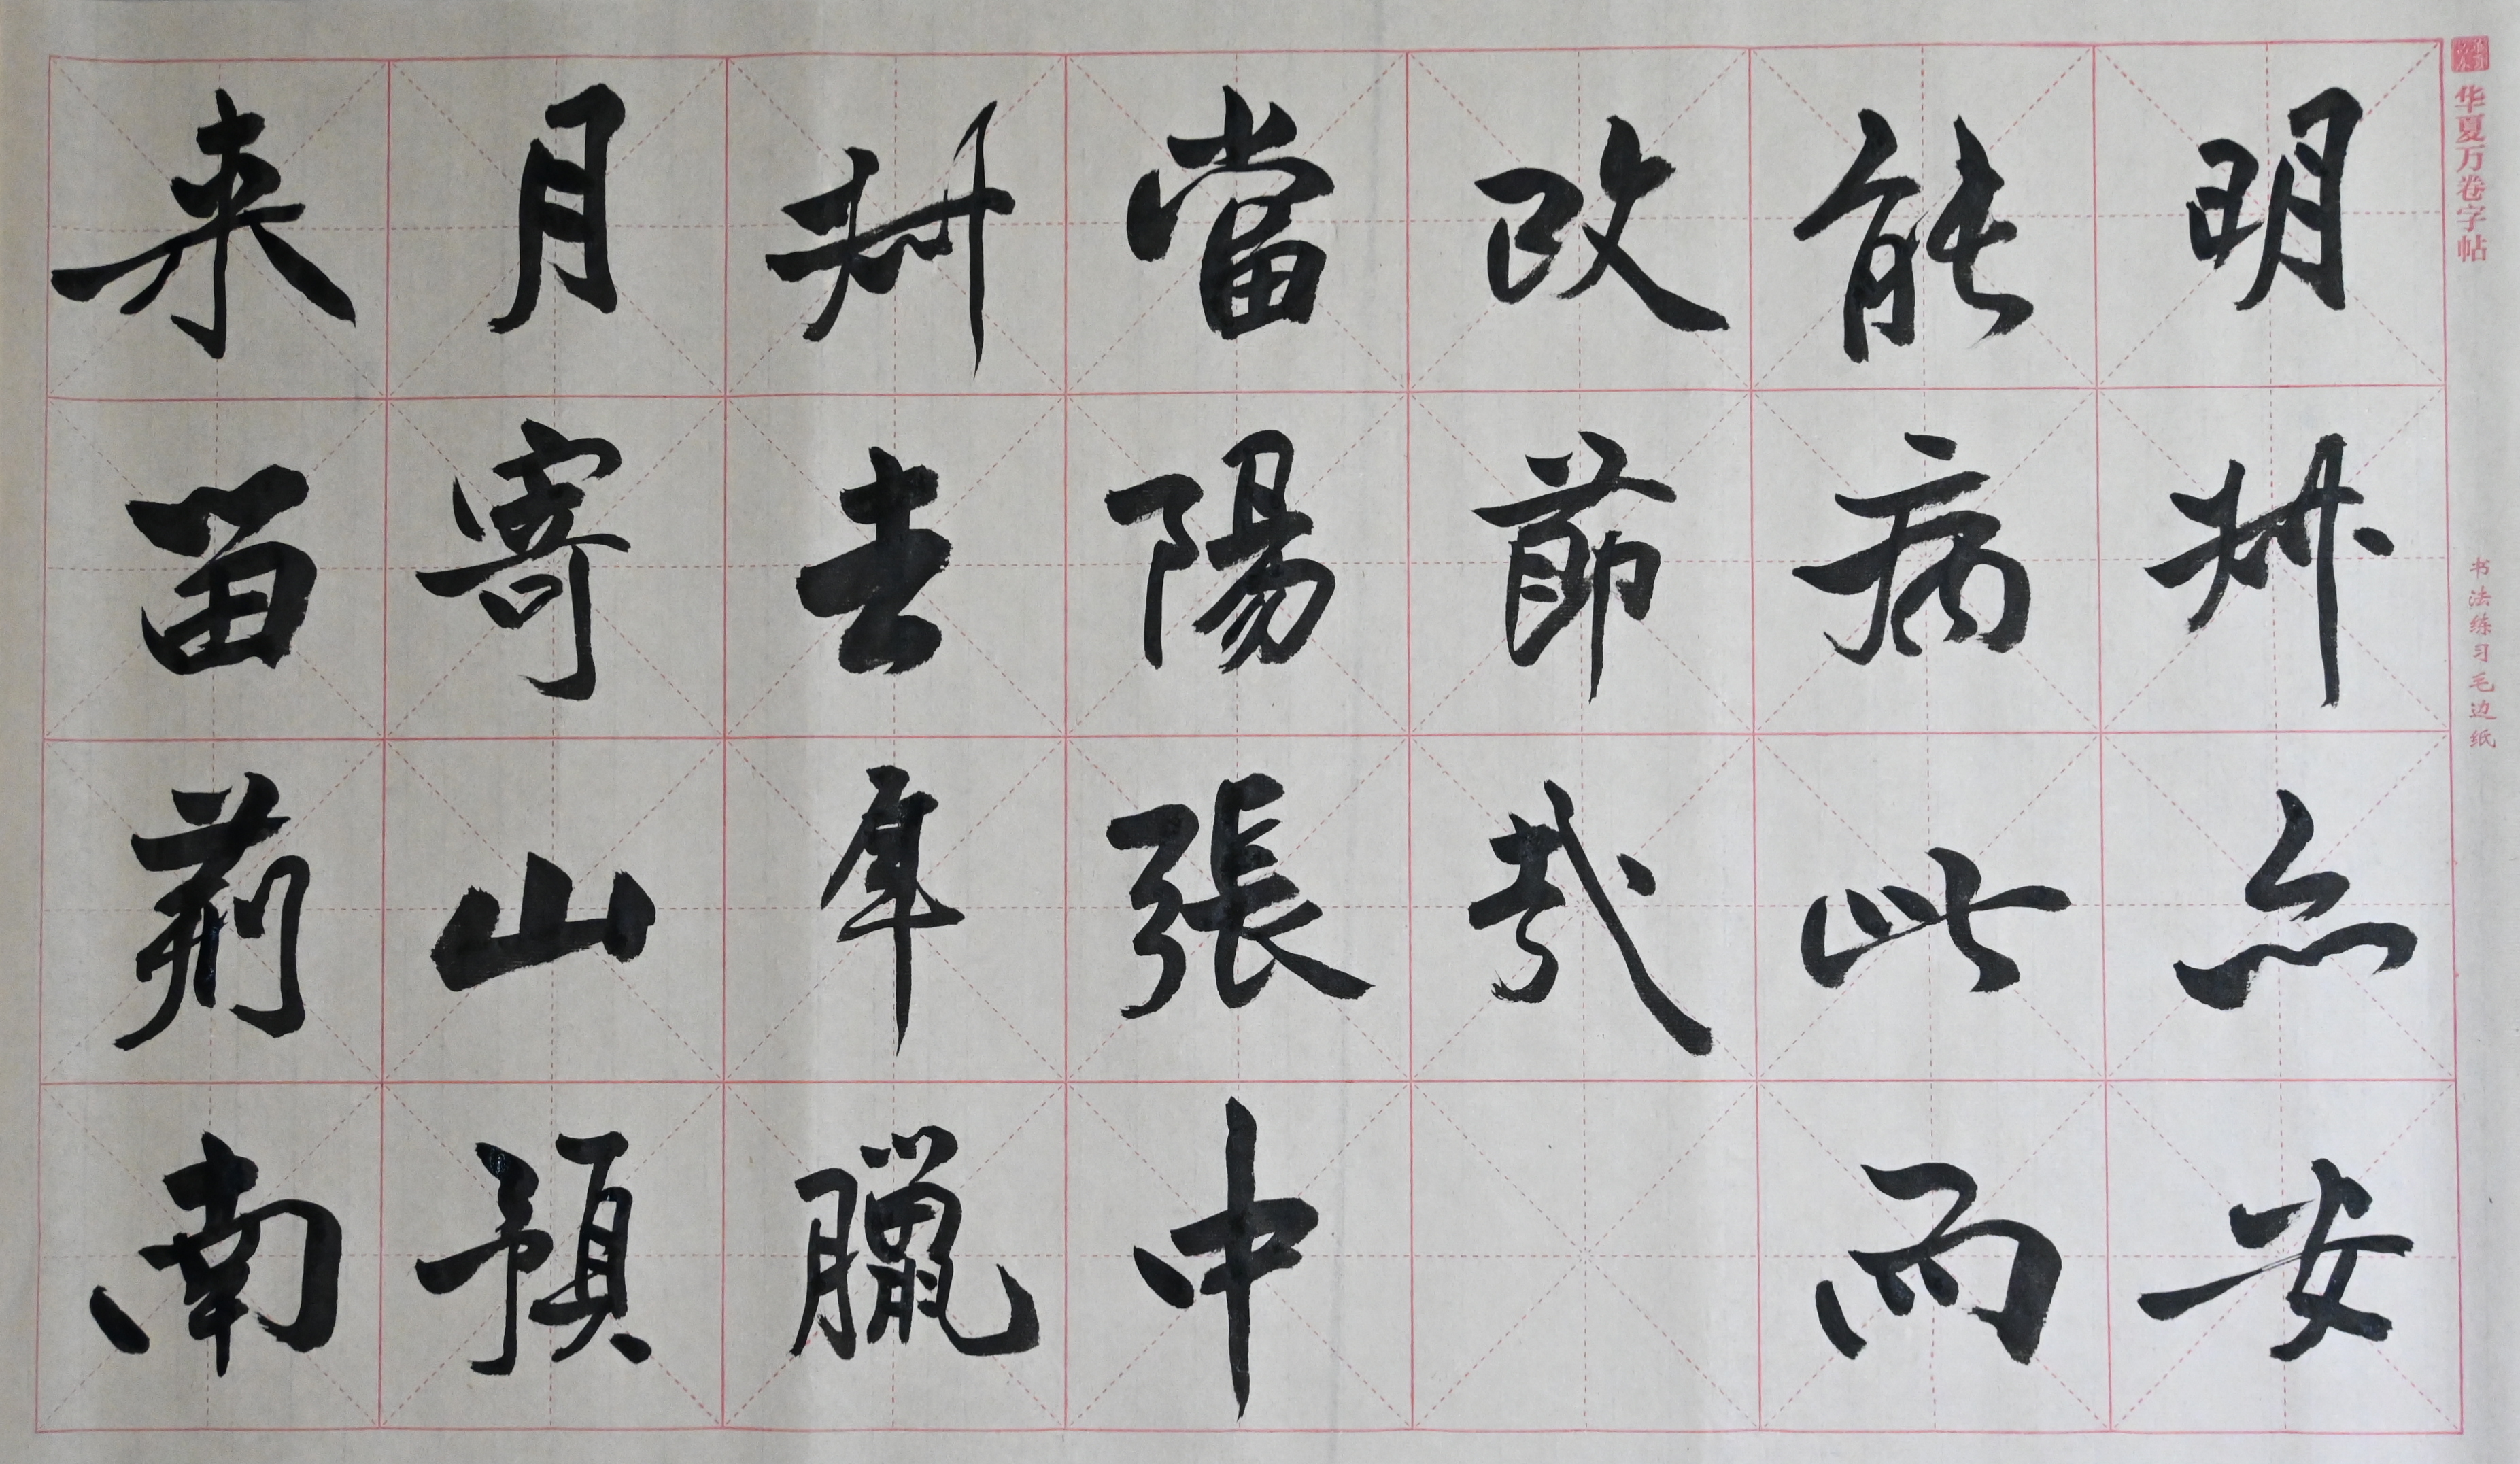 华夏万卷字帖
书法练习毛边纸
明叔亦安
能病此而
改節哉
當陽張中
叔去年臘
月寄山預
来留荆南